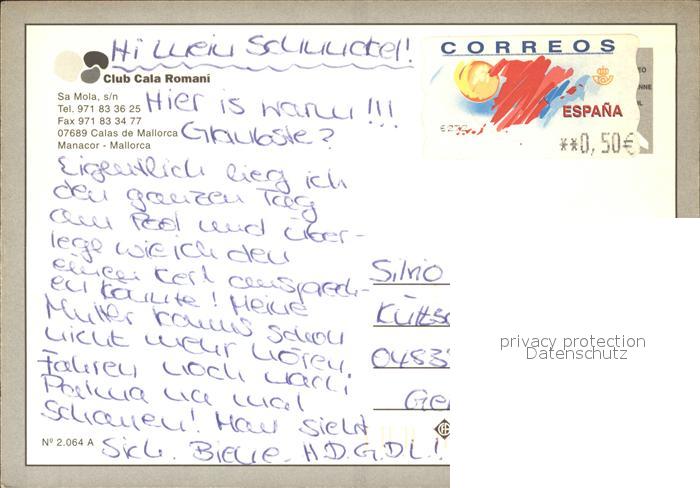 Hi mein Schnuckel!
CORREOS
ESPAÑA
**0,50€
Club Cala Romani
Sa Mola, s/n
Tel. 971 83 36 25
Fax 971 83 34 77
07689 Calas de Mallorca
Manacor - Mallorca
Hier is warm!!!
Glaubste?
Eigentlich lieg ich
den ganzen Tag
am Pool und über-
lege wie ich den
einen Kerl ansprech-
en könnte! Meine
Mutter kanns schon
nicht mehr hören.
Fahren noch nach
Palma na mal
schauen! Man sieht
sich. Biene. H.D.G.D.L.!
Silvio
0483
Ge
Nº 2.064 A
privacy protection
Datenschutz